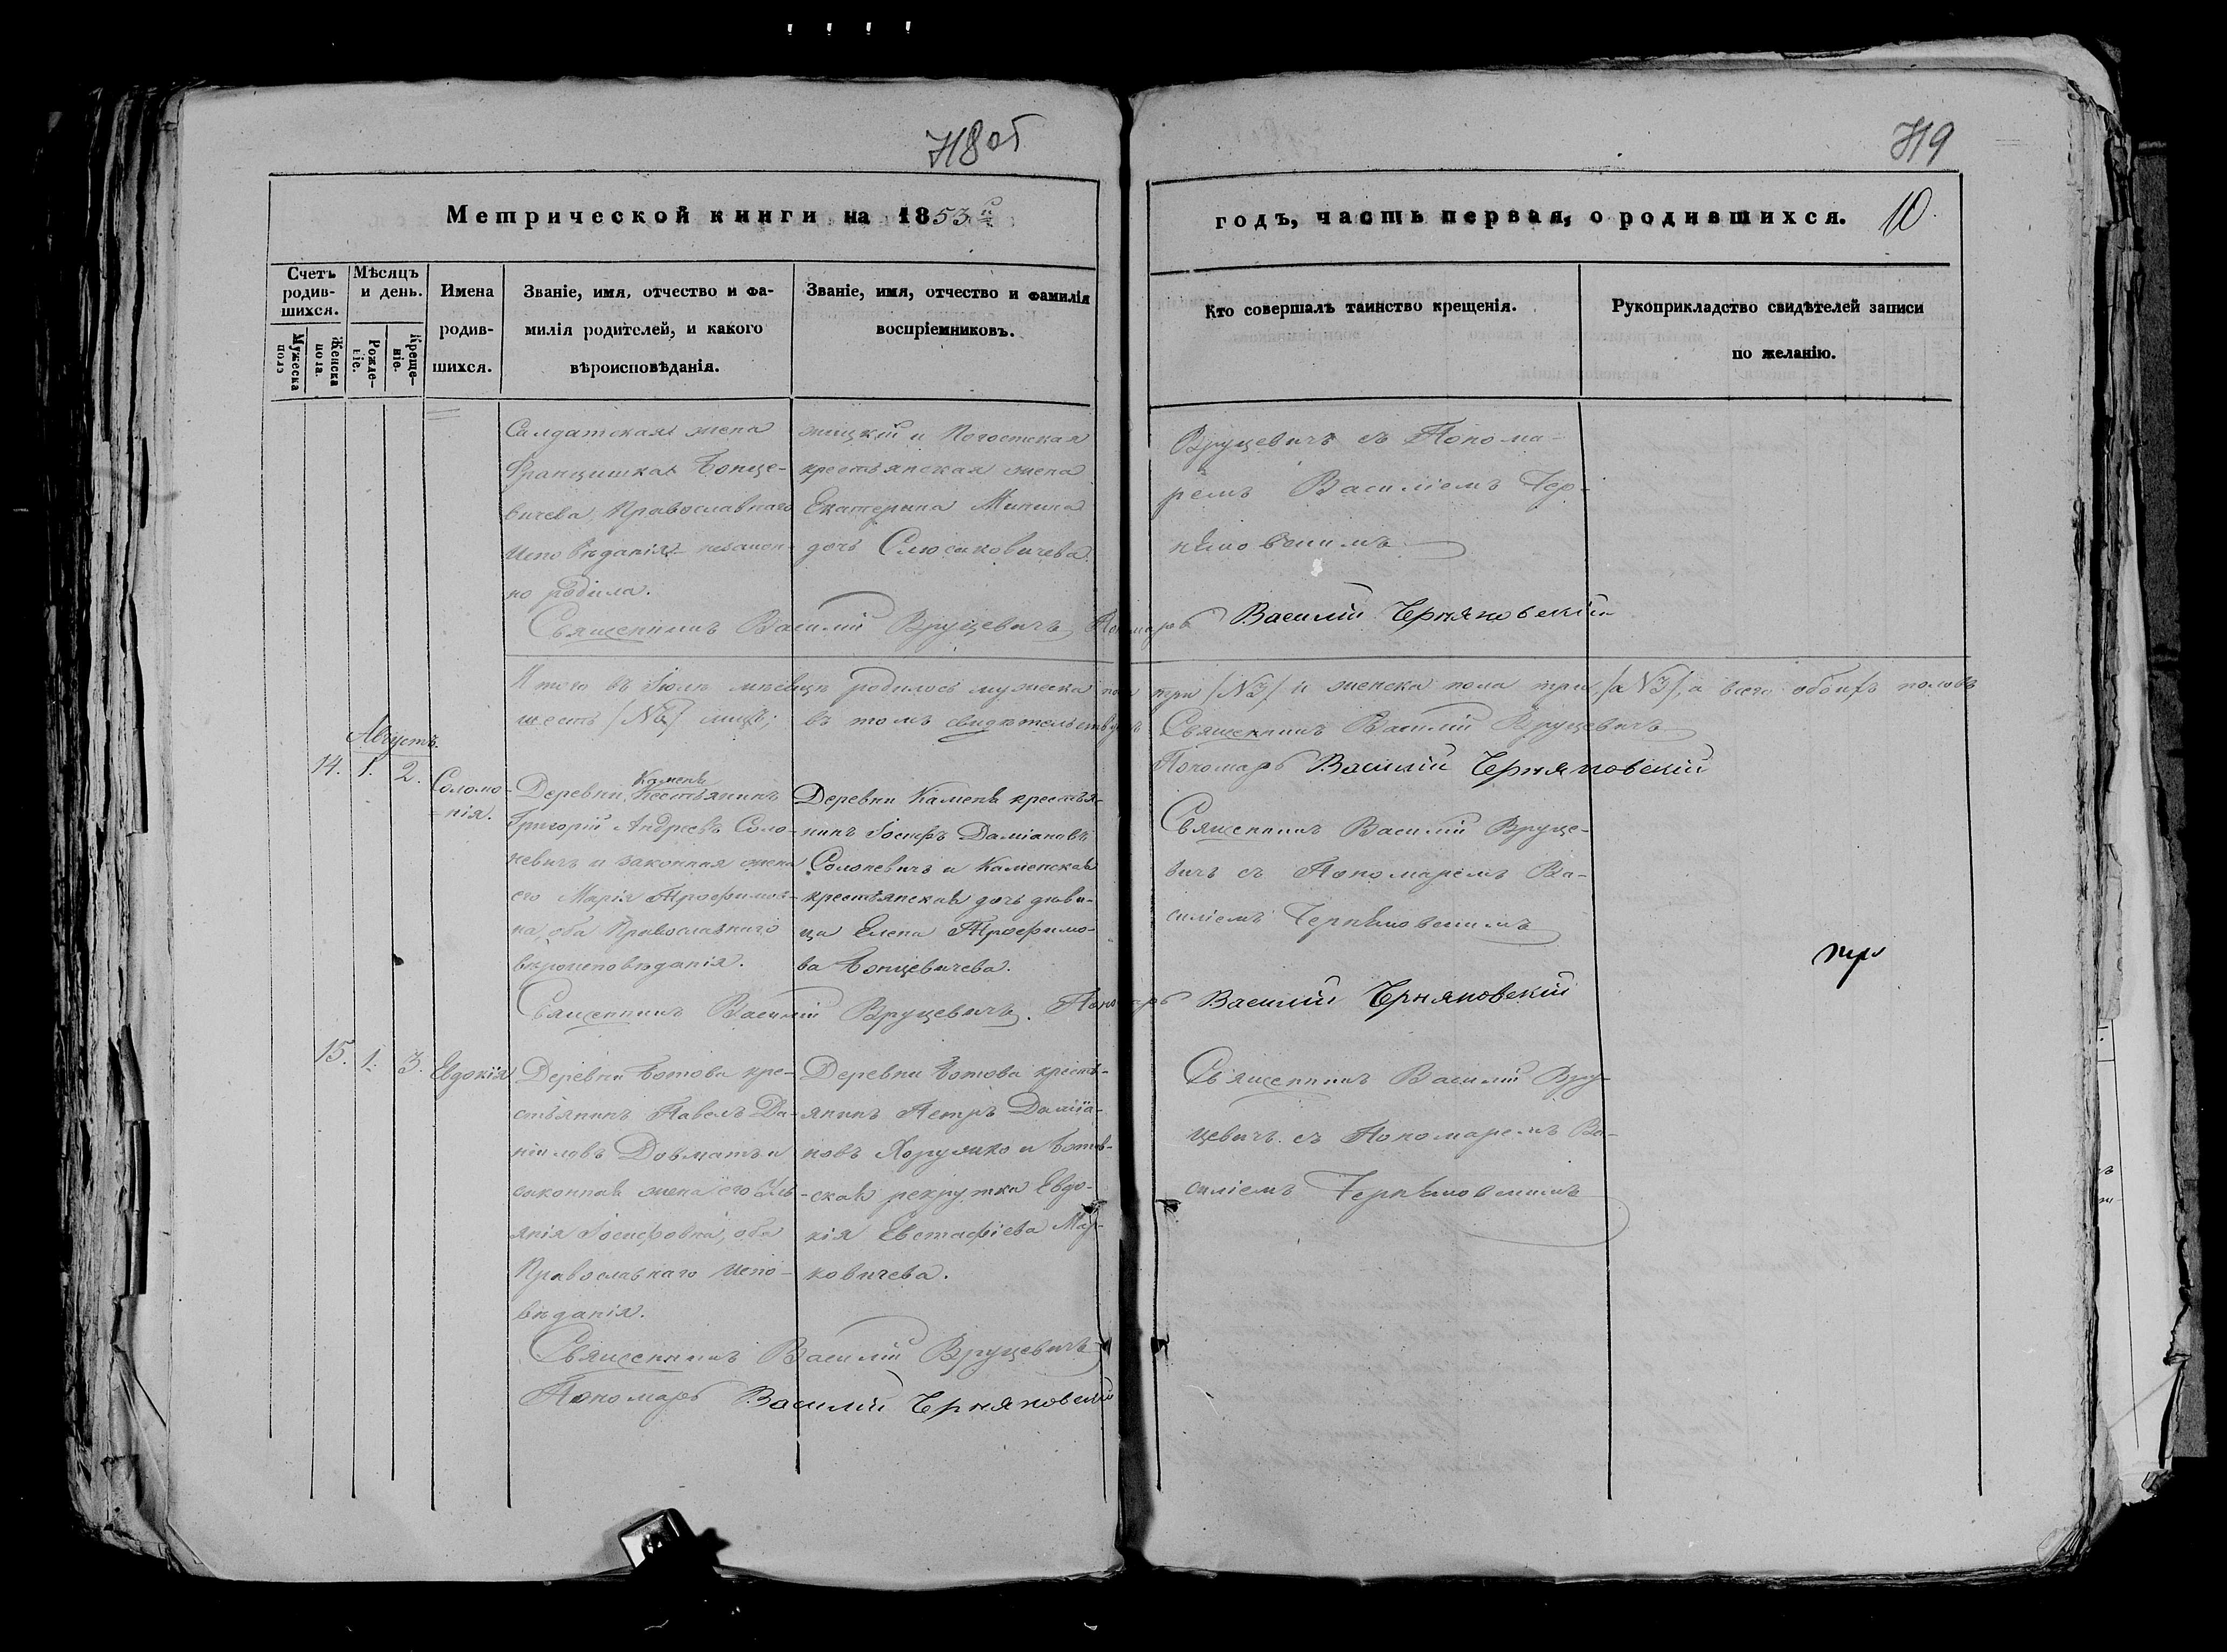 718 об
719
Метрической книги на 1853й
годъ, часть первая, о родившихся. 10.
Счетъ родившихся.
Мужеска полъ
Женска пола.
Мѣсяцъ и день.
Рождѣніе.
Крещеніе.
Имена
родив-
шихся.
Званіе, имя, отчество и фа-
милія родителей, и какого
вѣроисповѣданія.
Званіе, имя, отчество и фамилія
воспріемниковъ.
Кто совершалъ таинство крещенія.
Рукоприкладство свидѣтелей записи
по желанію.
Салдатская жена
Францишка Бопце-
вичева, Православнаго
Исповѣданія незакон-
но родила.
и Погостская
крестьянская жена
Екатерина Минина
дочь Слюсаковичева.
Вруцевичъ съ Понома-
ремъ Василіемъ Чер-
няковскимъ
Священникъ Василій Вруцевичъ, Пономарь Василій Черняковскій
Итого въ Іюлѣ мѣсяцѣ родилось мужеска пола три /№3/ и женска пола три /№3/, а всего обоихъ половъ
шесть /№6/ лицъ; въ томъ свидѣтельствуемъ Священникъ Василій Вруцевичъ
Пономарь Василій Черняковскій
Августъ.
14. 1. 2.
Соломо-
нія.
Деревни Камень Кестьянинъ
Григорій Андреевъ Соло-
невичъ и законная жена
его Марія Трофимов-
на, оба Православнаго
вѣроисповѣданія.
Деревни Камень крестья-
нинъ Іосифъ Даміановъ
Солоневичъ и Каменская
крестьянская дочь дѣви-
ца Елена Трофимо-
ва Бопцевичева.
Священникъ Василій Вруце-
вичъ съ Пономаремъ Ва-
силіемъ Черняковскимъ
Священникъ Василій Вруцевичъ. Пономарь Василій Черняковскій
15. 1. 3.
Евдокія
Деревни Ботова кре-
стьянинъ Павелъ Да-
ніиловъ Довматъ и
законная жена его Уль-
янія Іосифовна, оба
Православнаго Испо-
вѣданія.
Деревни Ботова кресть-
янинъ Петръ Даміа-
новъ Хоружко и Ботов-
ская рекрутка Евдо-
кія Евстафіева Мар-
ковичева.
Священникъ Василій Вру-
цевичъ съ Пономаремъ Ва-
силіемъ Черняковскимъ
Священникъ Василій Вруцевичъ
Пономарь Василій Черняковскій